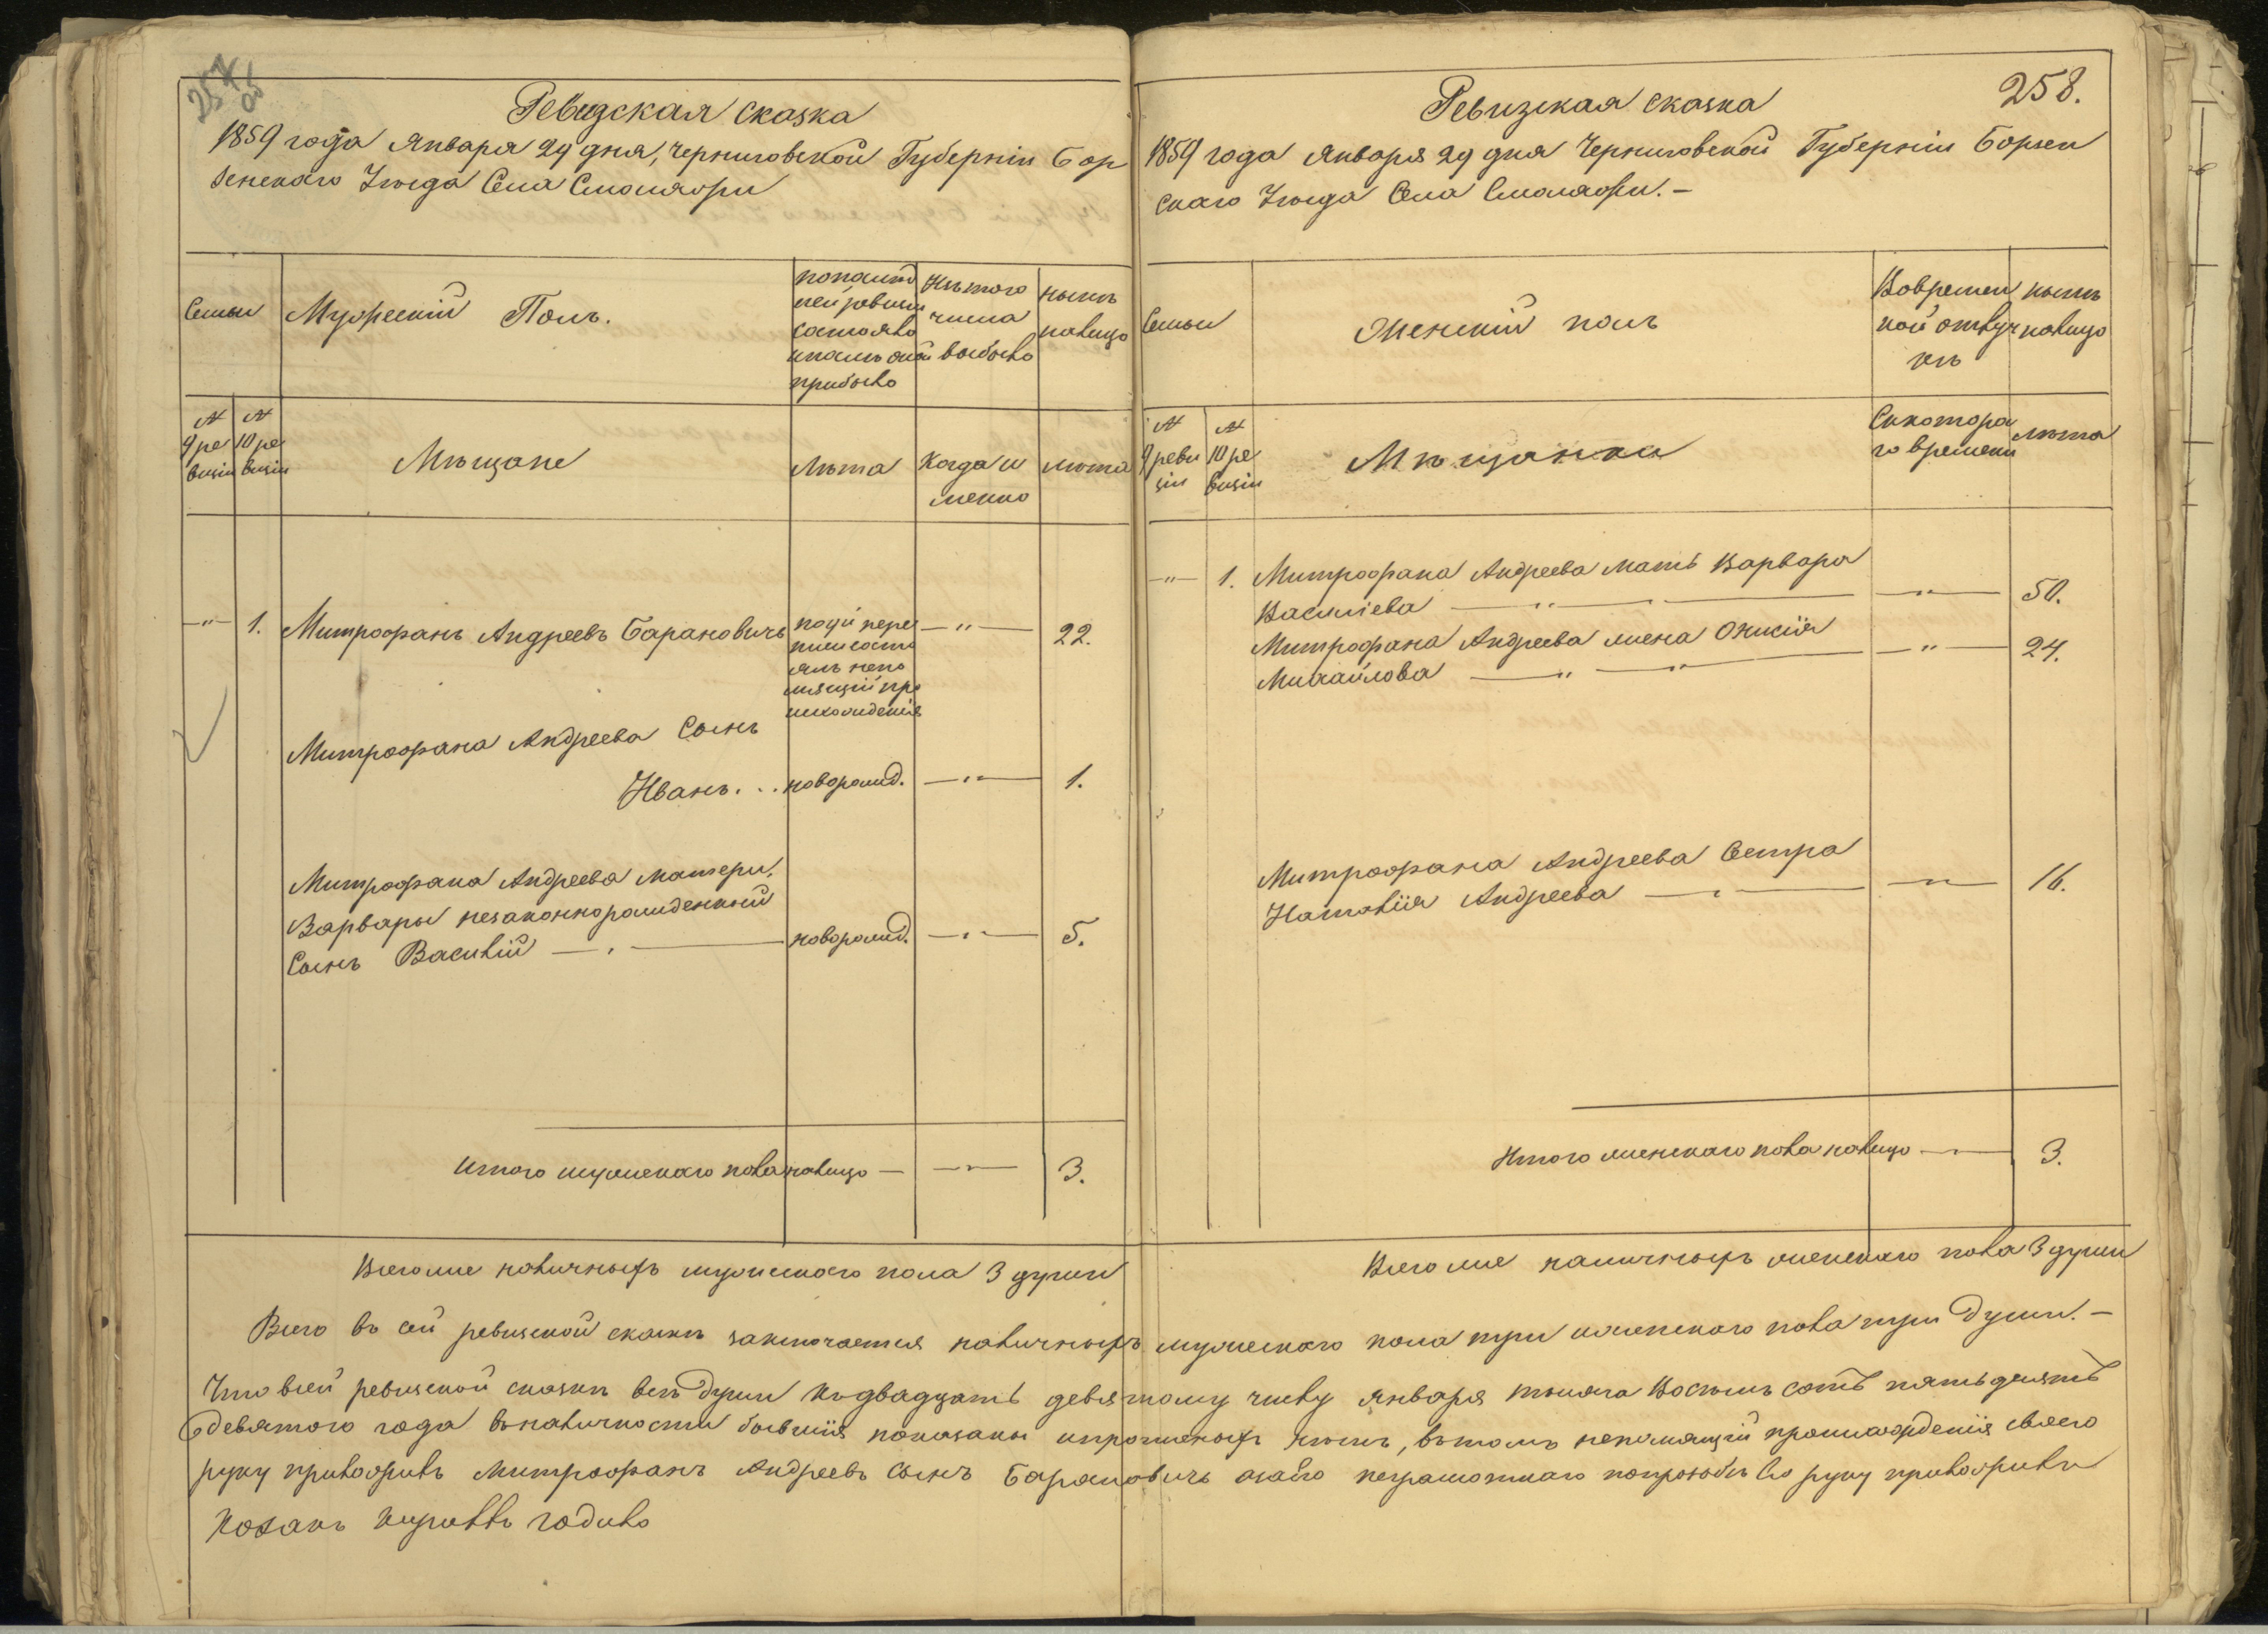 257
об
Ревизская сказка
1859 года Января 29 дня, Черниговской Губерніи Бор
зенскаго Уезда Села Смоляжи
Семьи
Мужескій Полъ.
попослед
ней ревизіи
состояло
ипосле оной
прибыло
Изъ того
числа
выбыло
ныне
налицо
№
9 ре
визіи
№
10 ре
визіи
Мещане
Лета
Когда и
менно
лета
—"—
1.
Митрофанъ Андреевъ Барановичь
по 9й пере
писи состо
ялъ непо
мнящій про
исхожденія
—"—
22.
Митрофана Андреева Сынъ
Иванъ...
новорожд.
—"—
1.
Митрофана Андреева матери,
Варвары незаконнорожденный
Сынъ Василій —
новорожд.
—"—
5.
Итого мужескаго пола налицо —
—"—
3.
Всего же наличныхъ мужескаго пола 3 души
258.
Ревизская сказка
1859 года Января 29 дня Черниговской Губерніи Борзен
скаго Уезда Села Смоляжи. —
Семьи
Женскій полъ
Вовремен
ной отлуч
ке
ныне
налицо
№
9 реви
зіи
№
10 ре
визіи
Мещанки
Скотора
го времени
лета
—"—
1.
Митрофана Андреева мать Варвара
Васильева —"—
—"—
50.
Митрофана Андреева жена Онисія
Михайлова —"—"—
—"—
24.
Митрофана Андреева Сестра
Наталія Андреева —
—"—
16.
Итого женскаго пола налицо —"—
3.
Всего же наличныхъ женскаго пола 3 души
Всего въ сей ревизской сказке заключается наличныхъ мужескаго пола три иженскаго пола три души. —
Что всей ревизской сказке все души Кодвадцать девятому числу Января тысяча Восемь сотъ пятьдесятъ
девятого года вналичности бывшія показаны ипрописныхъ нетъ, вътомъ непомнящій происхожденія своего
руку приложилъ Митрофанъ Андреевъ сынъ Барановичь азаего неграмотнаго попрозьбе Его руку приложилъ
Козакъ